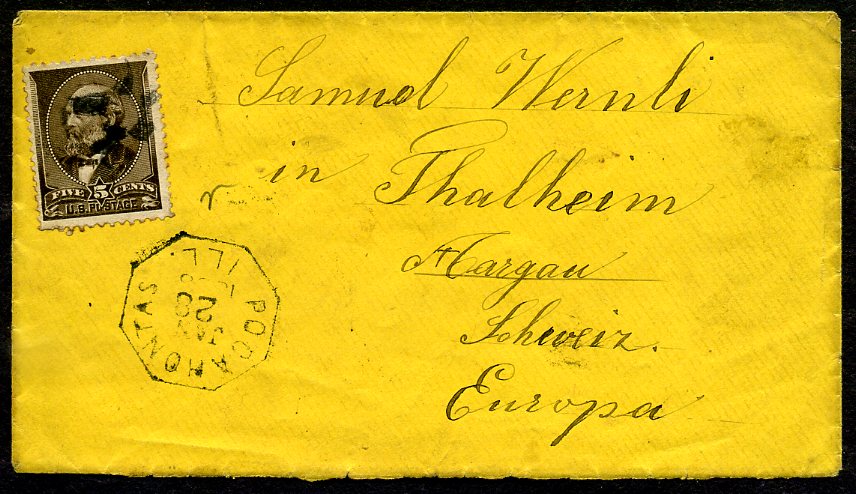 Samuel Wernli
in Thalheim
Aargau
Schweiz.
Europa
FIVE 5 CENTS
U.S. POSTAGE
POCAHONTAS ILL.
JAN
28